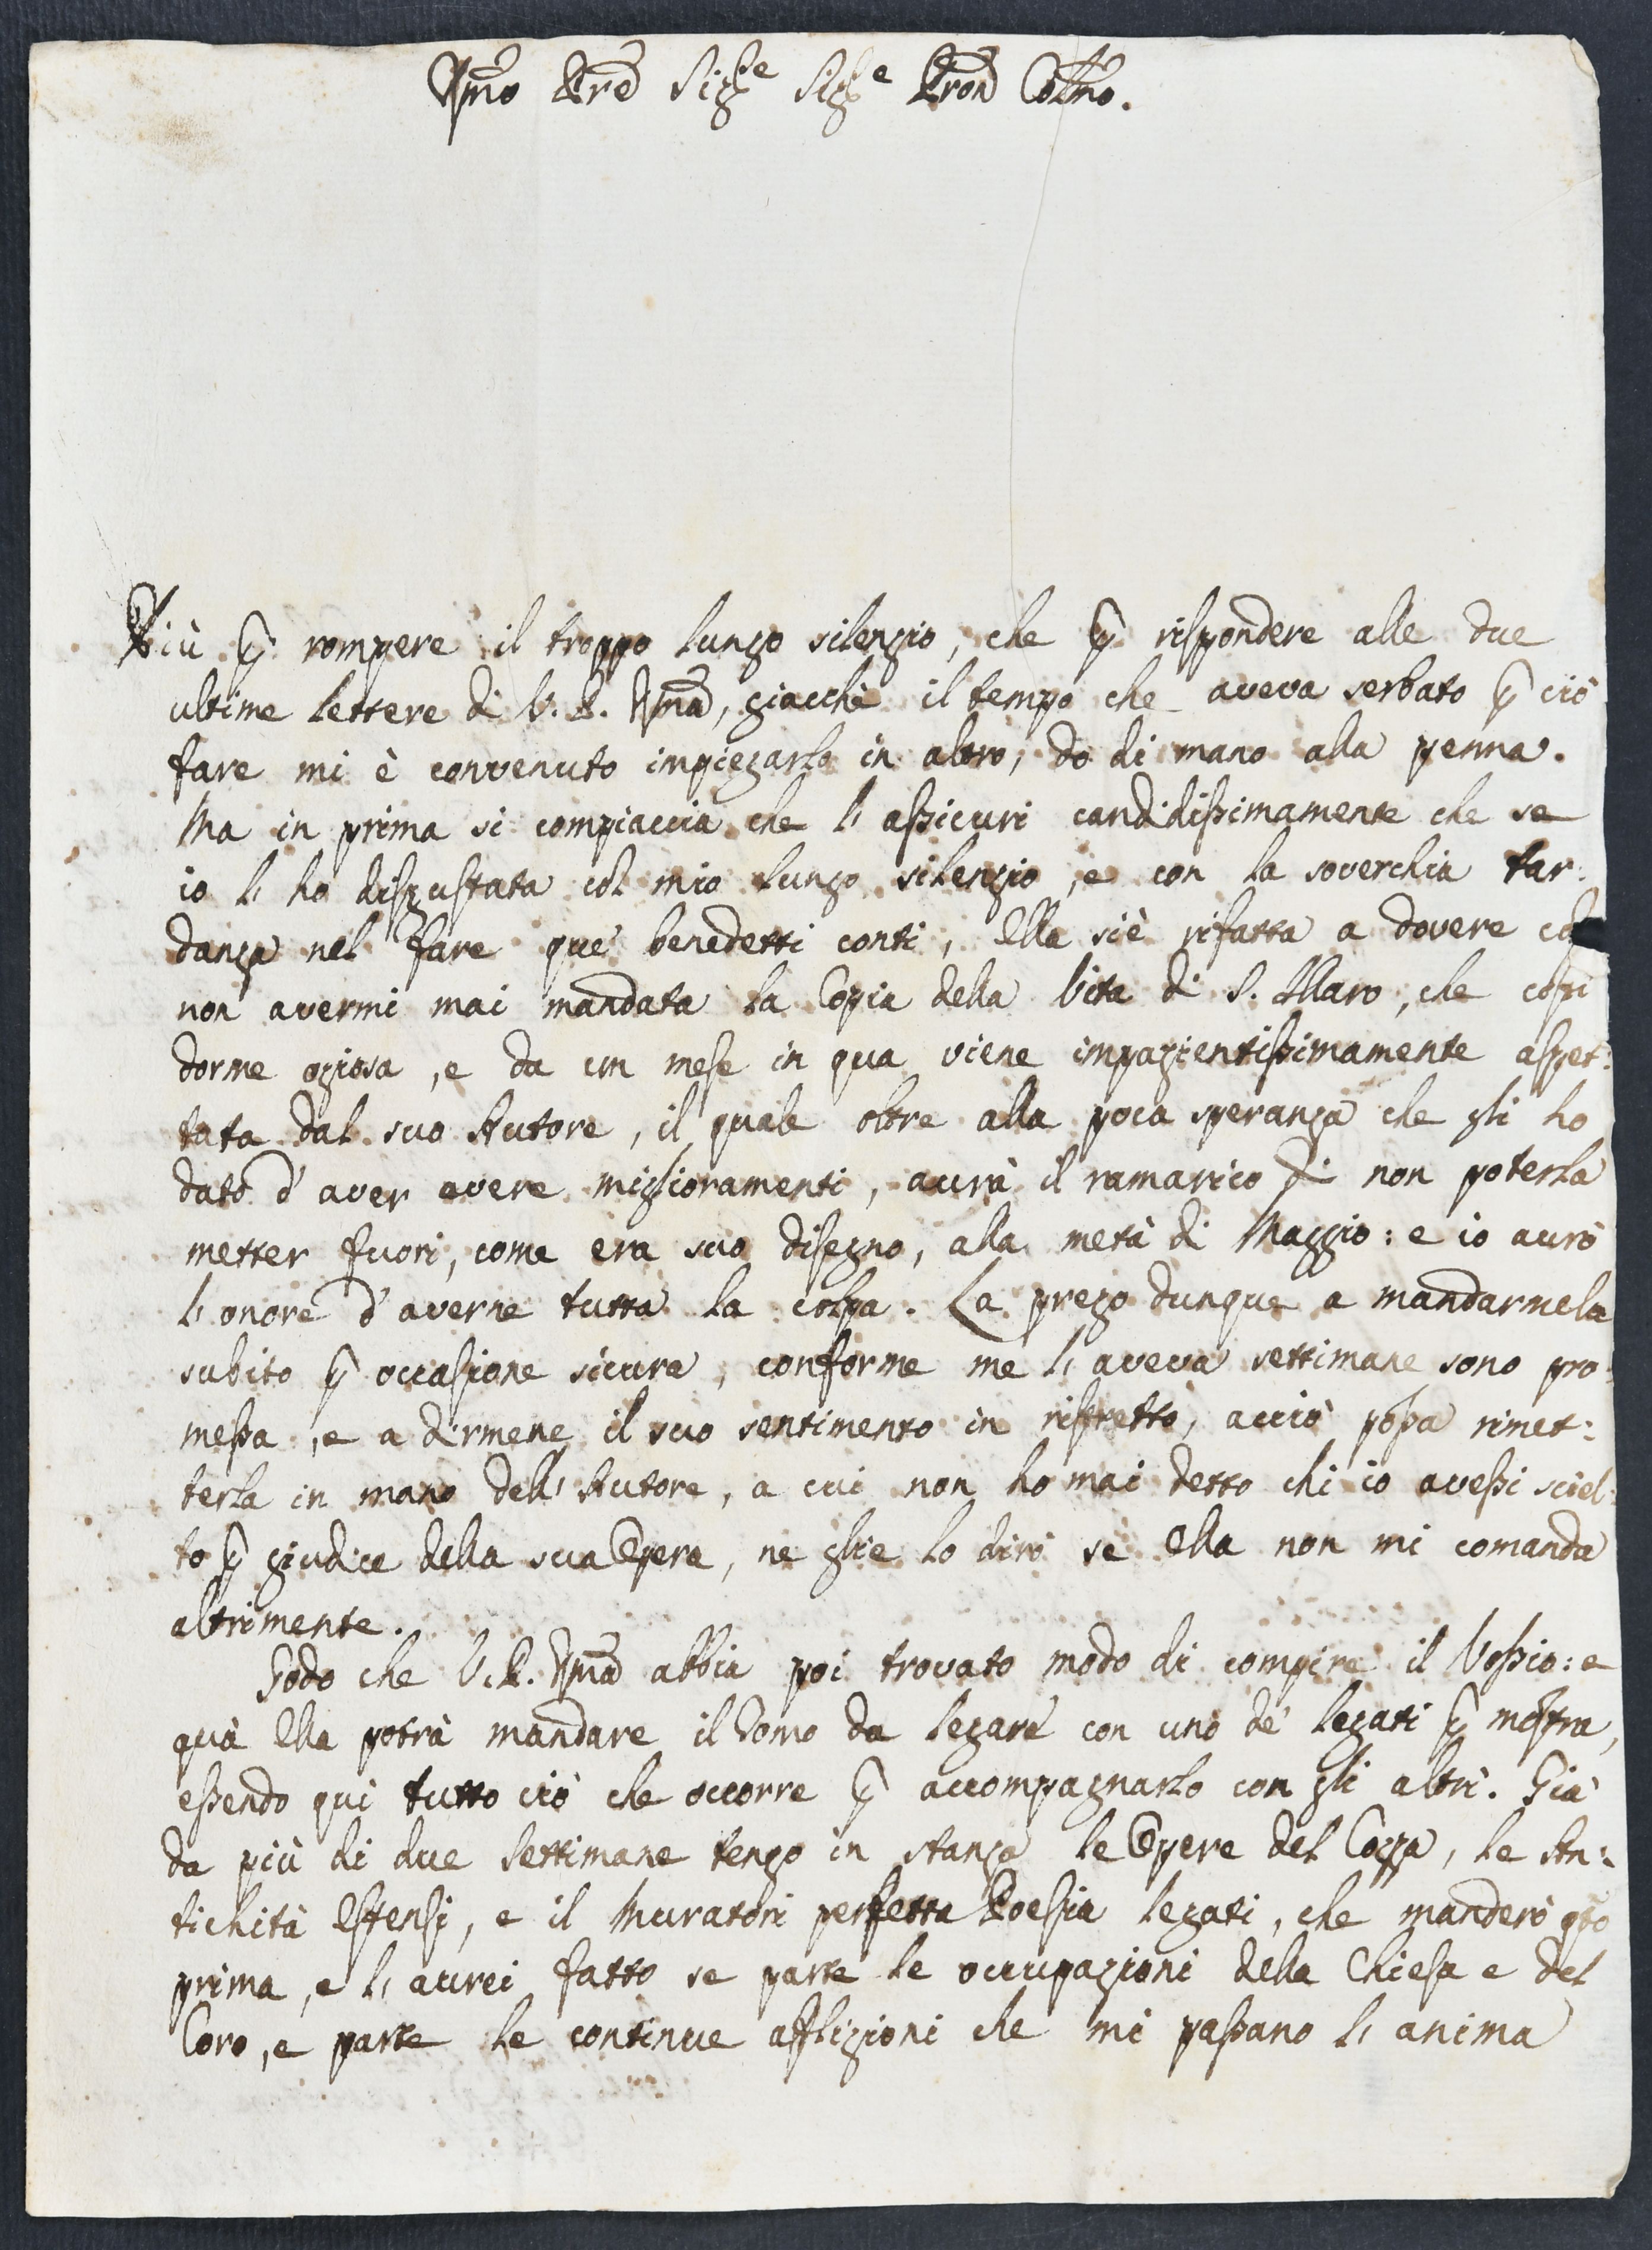 Rmo Pre Sigre Sigre Pron Colmo.
Più p rompere il troppo lungo silenzio, che p rispondere alle due
ultime lettere di V. P. Rma, giacchè il tempo che aveva serbato p ciò
fare mi è convenuto impiegarlo in altro, do di mano alla penna.
Ma in prima si compiaccia che l'assicuri candidissimamente che se
io l'ho disgustata col mio lungo silenzio, e con la soverchia tar:
danza nel fare que' benedetti conti, Ella si è rifatta a dovere col
non avermi mai mandata la Copia della Vita di S. Illaro, che costì
dorme oziosa, e da un mese in qua viene impazientissimamente aspet:
tata dal suo Autore, il quale oltre alla poca speranza che gli ho
dato d'aver avere miglioramenti, avrà il ramarico di non poterla
metter fuori, come era suo disegno, alla metà di Maggio: e io avrò
l'onore d'averne tutta la colpa. La prego dunque a mandarmela
subito p occasione sicura, conforme me l'aveva settimane sono pro:
messa, e a dirmene il suo sentimento in ristretto, acciò possa rimet:
terla in mano dell'Autore, a cui non ho mai detto chi io avessi sciel:
to p giudice della sua Opera, ne glie lo dirò se Ella non mi comanda
altrimente.
Godo che V. P. Rma abbia poi trovato modo di compire il Vossio: e
quà Ella potrà mandare il Tomo da legare con uno de' legati p mostra,
essendo qui tutto ciò che occorre p accompagnarlo con gli altri. Già
da più di due settimane tengo in stanza le Opere del Cozza, le An:
tichità Estensi, e il Muratori perfetta Poesia legati, che manderò qto
prima, e l'avrei fatto se parte le occupazioni della Chiesa e del
Coro, e parte le continue afflizioni che mi passano l'anima